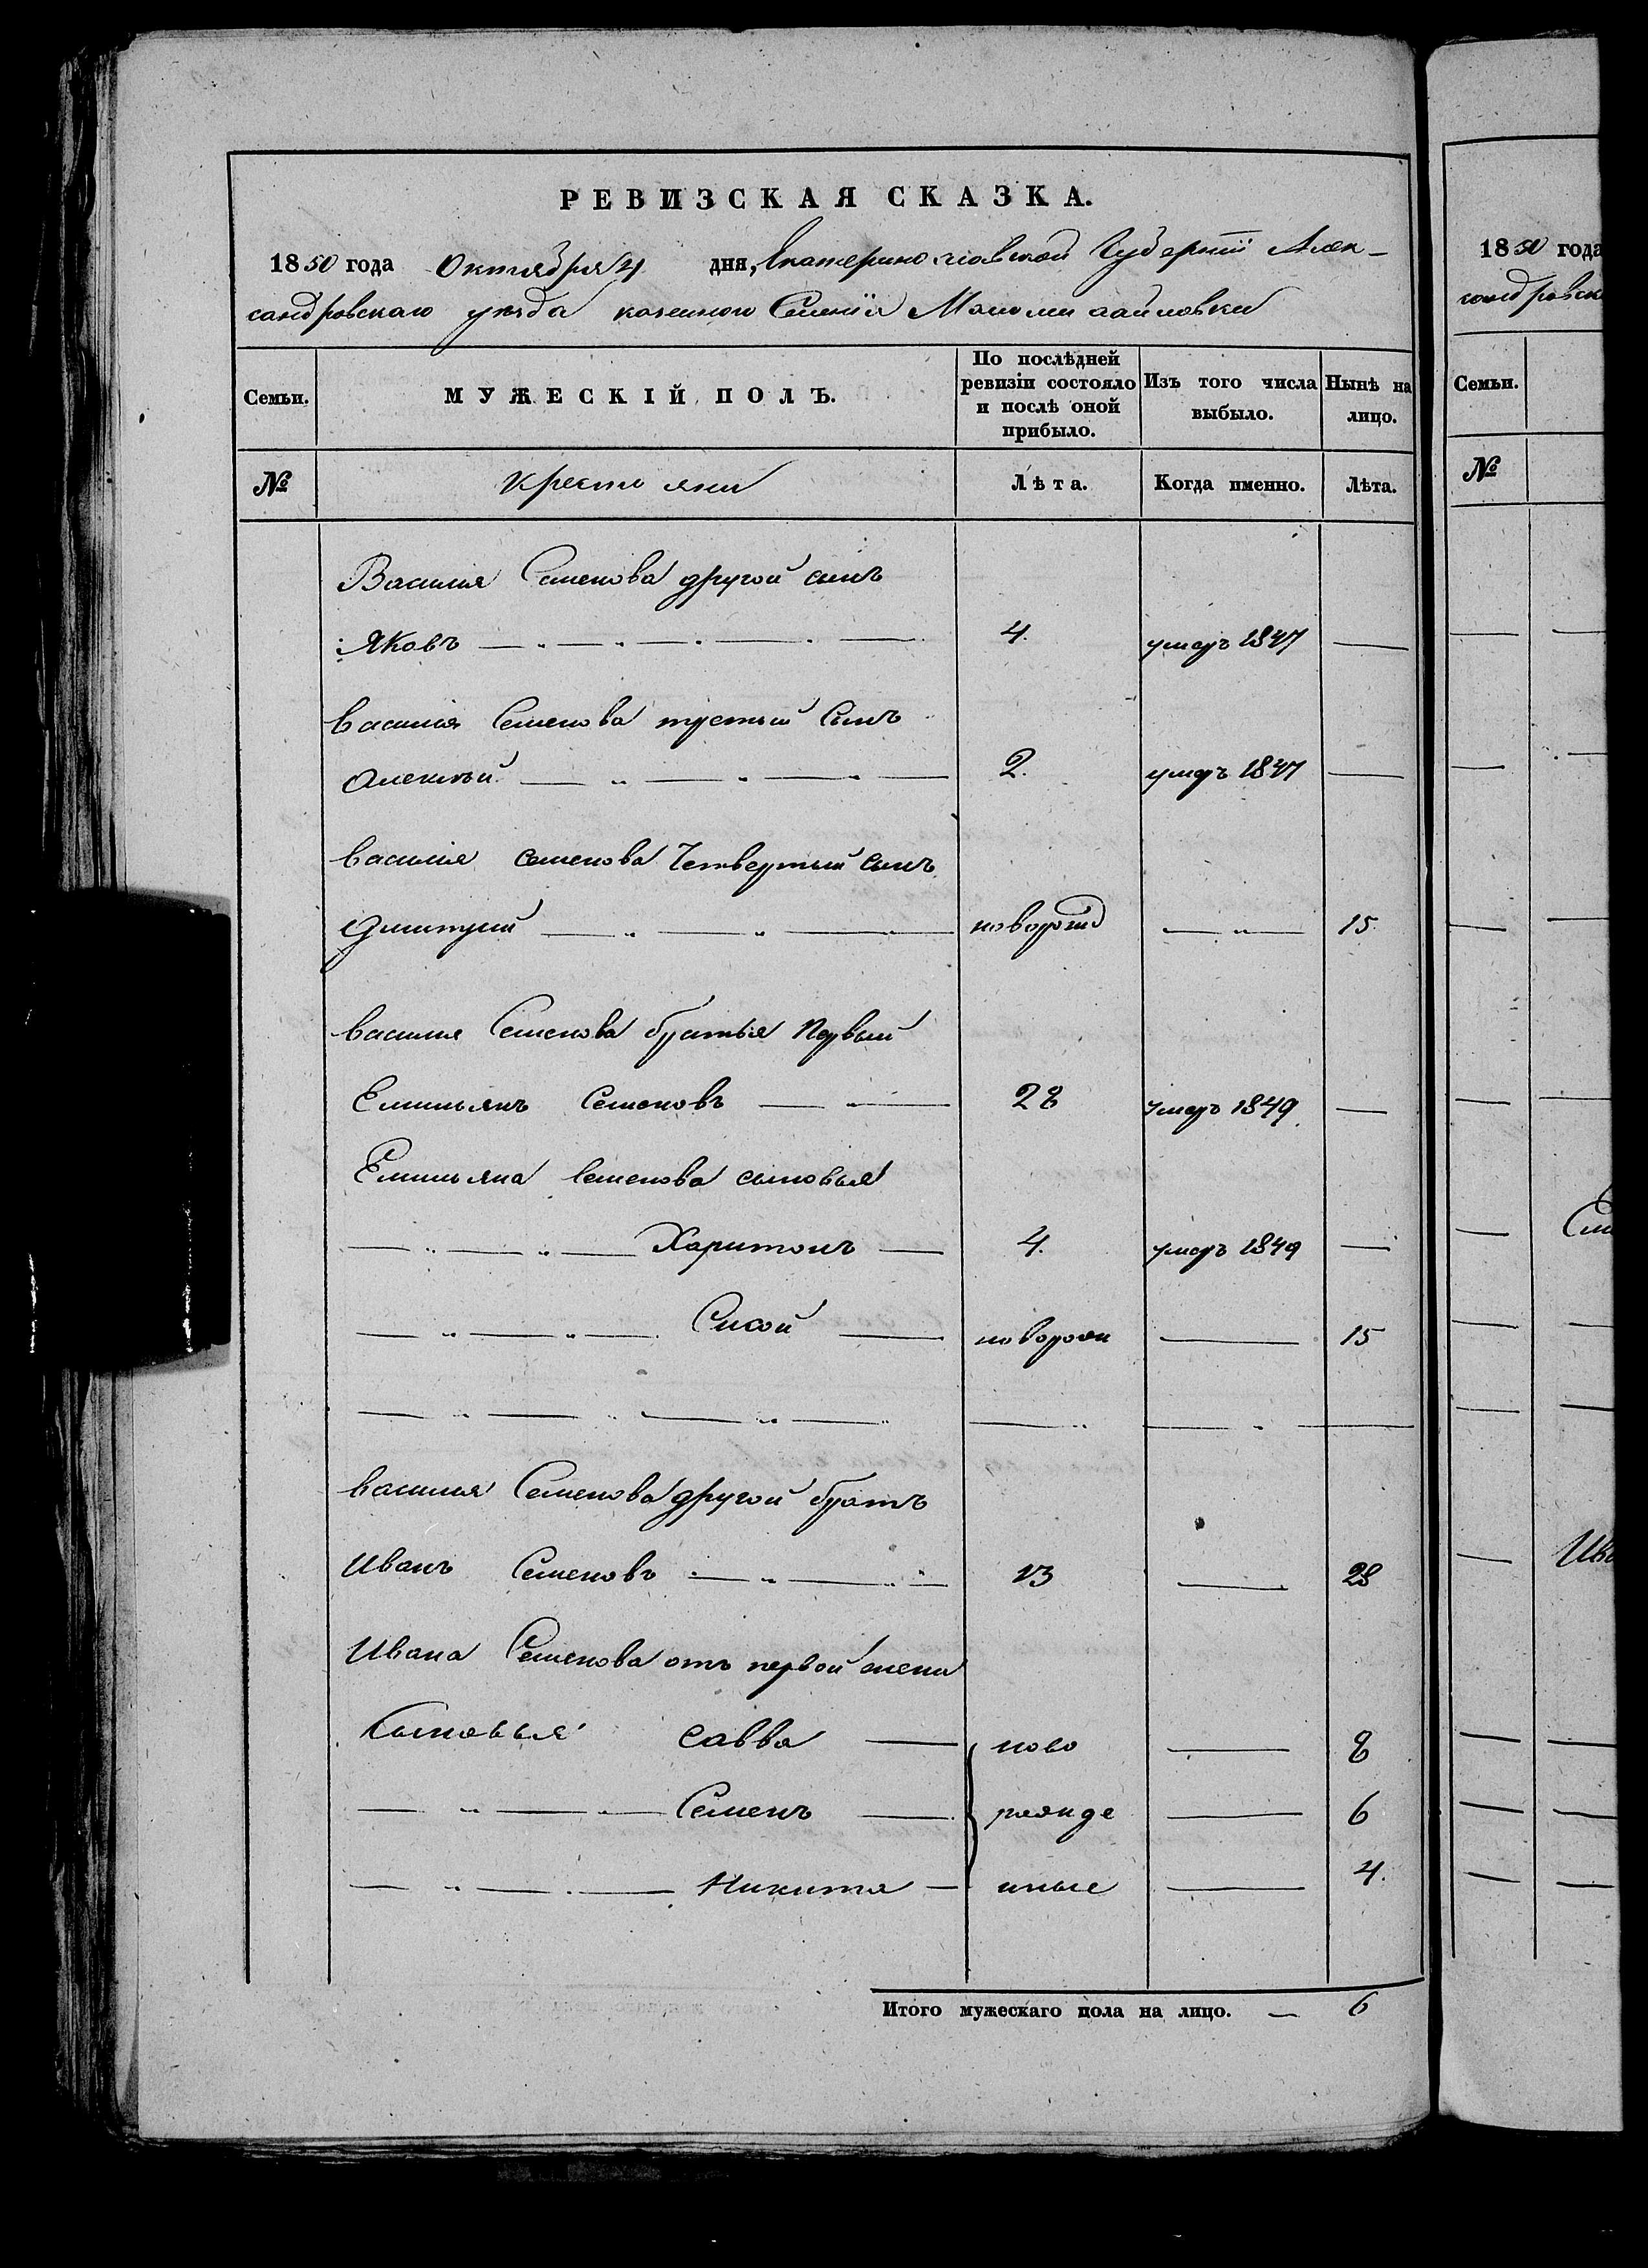 РЕВИЗСКАЯ СКАЗКА.
1850 года Октября 4 дня, Екатеринославской Губерніи Алек-
сандровскаго уѣзда казеннаго Селенія
Семьи. МУЖЕСКІЙ ПОЛЪ. По послѣдней ревизіи состояло и послѣ оной прибыло. Изъ того числа выбыло. Нынѣ на лицо.
№ Крестьяни Лѣта. Когда именно. Лѣта.
Василия Семенова другой сынъ
Яковъ 4. умеръ 1847
Василия Семенова третий Сынъ
Алексѣй 2. умеръ 1847
Василия семенова Четвертый сынъ
Дмитрий новорожд 15
Василия Семенова братья Первый
Емильянъ Семеновъ 28 умеръ 1849
Емильяна Семенова сыновья
Харитонъ 4. умеръ 1849
Сисой новорож 15
Василия Семенова другой братъ
Иванъ Семеновъ 13 28
Ивана Семенова отъ первой жени
Сыновья Савва ново 8
Семенъ рожде 6
Никита нные 4.
Итого мужескаго пола на лицо. — 6
1850 года
сандровск
Семьи.
№
Ива